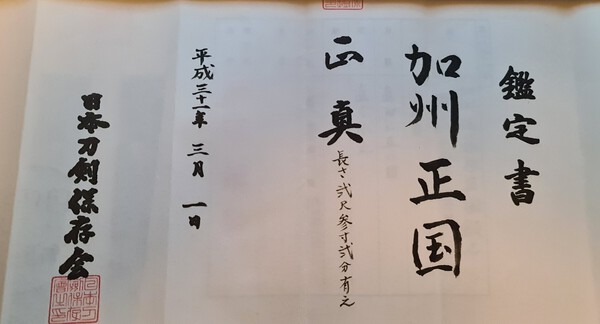 鑑定書
加州正国
正真
長さ弐尺参寸弐分有之
平成三十一年三月一日
日本刀剣保存会